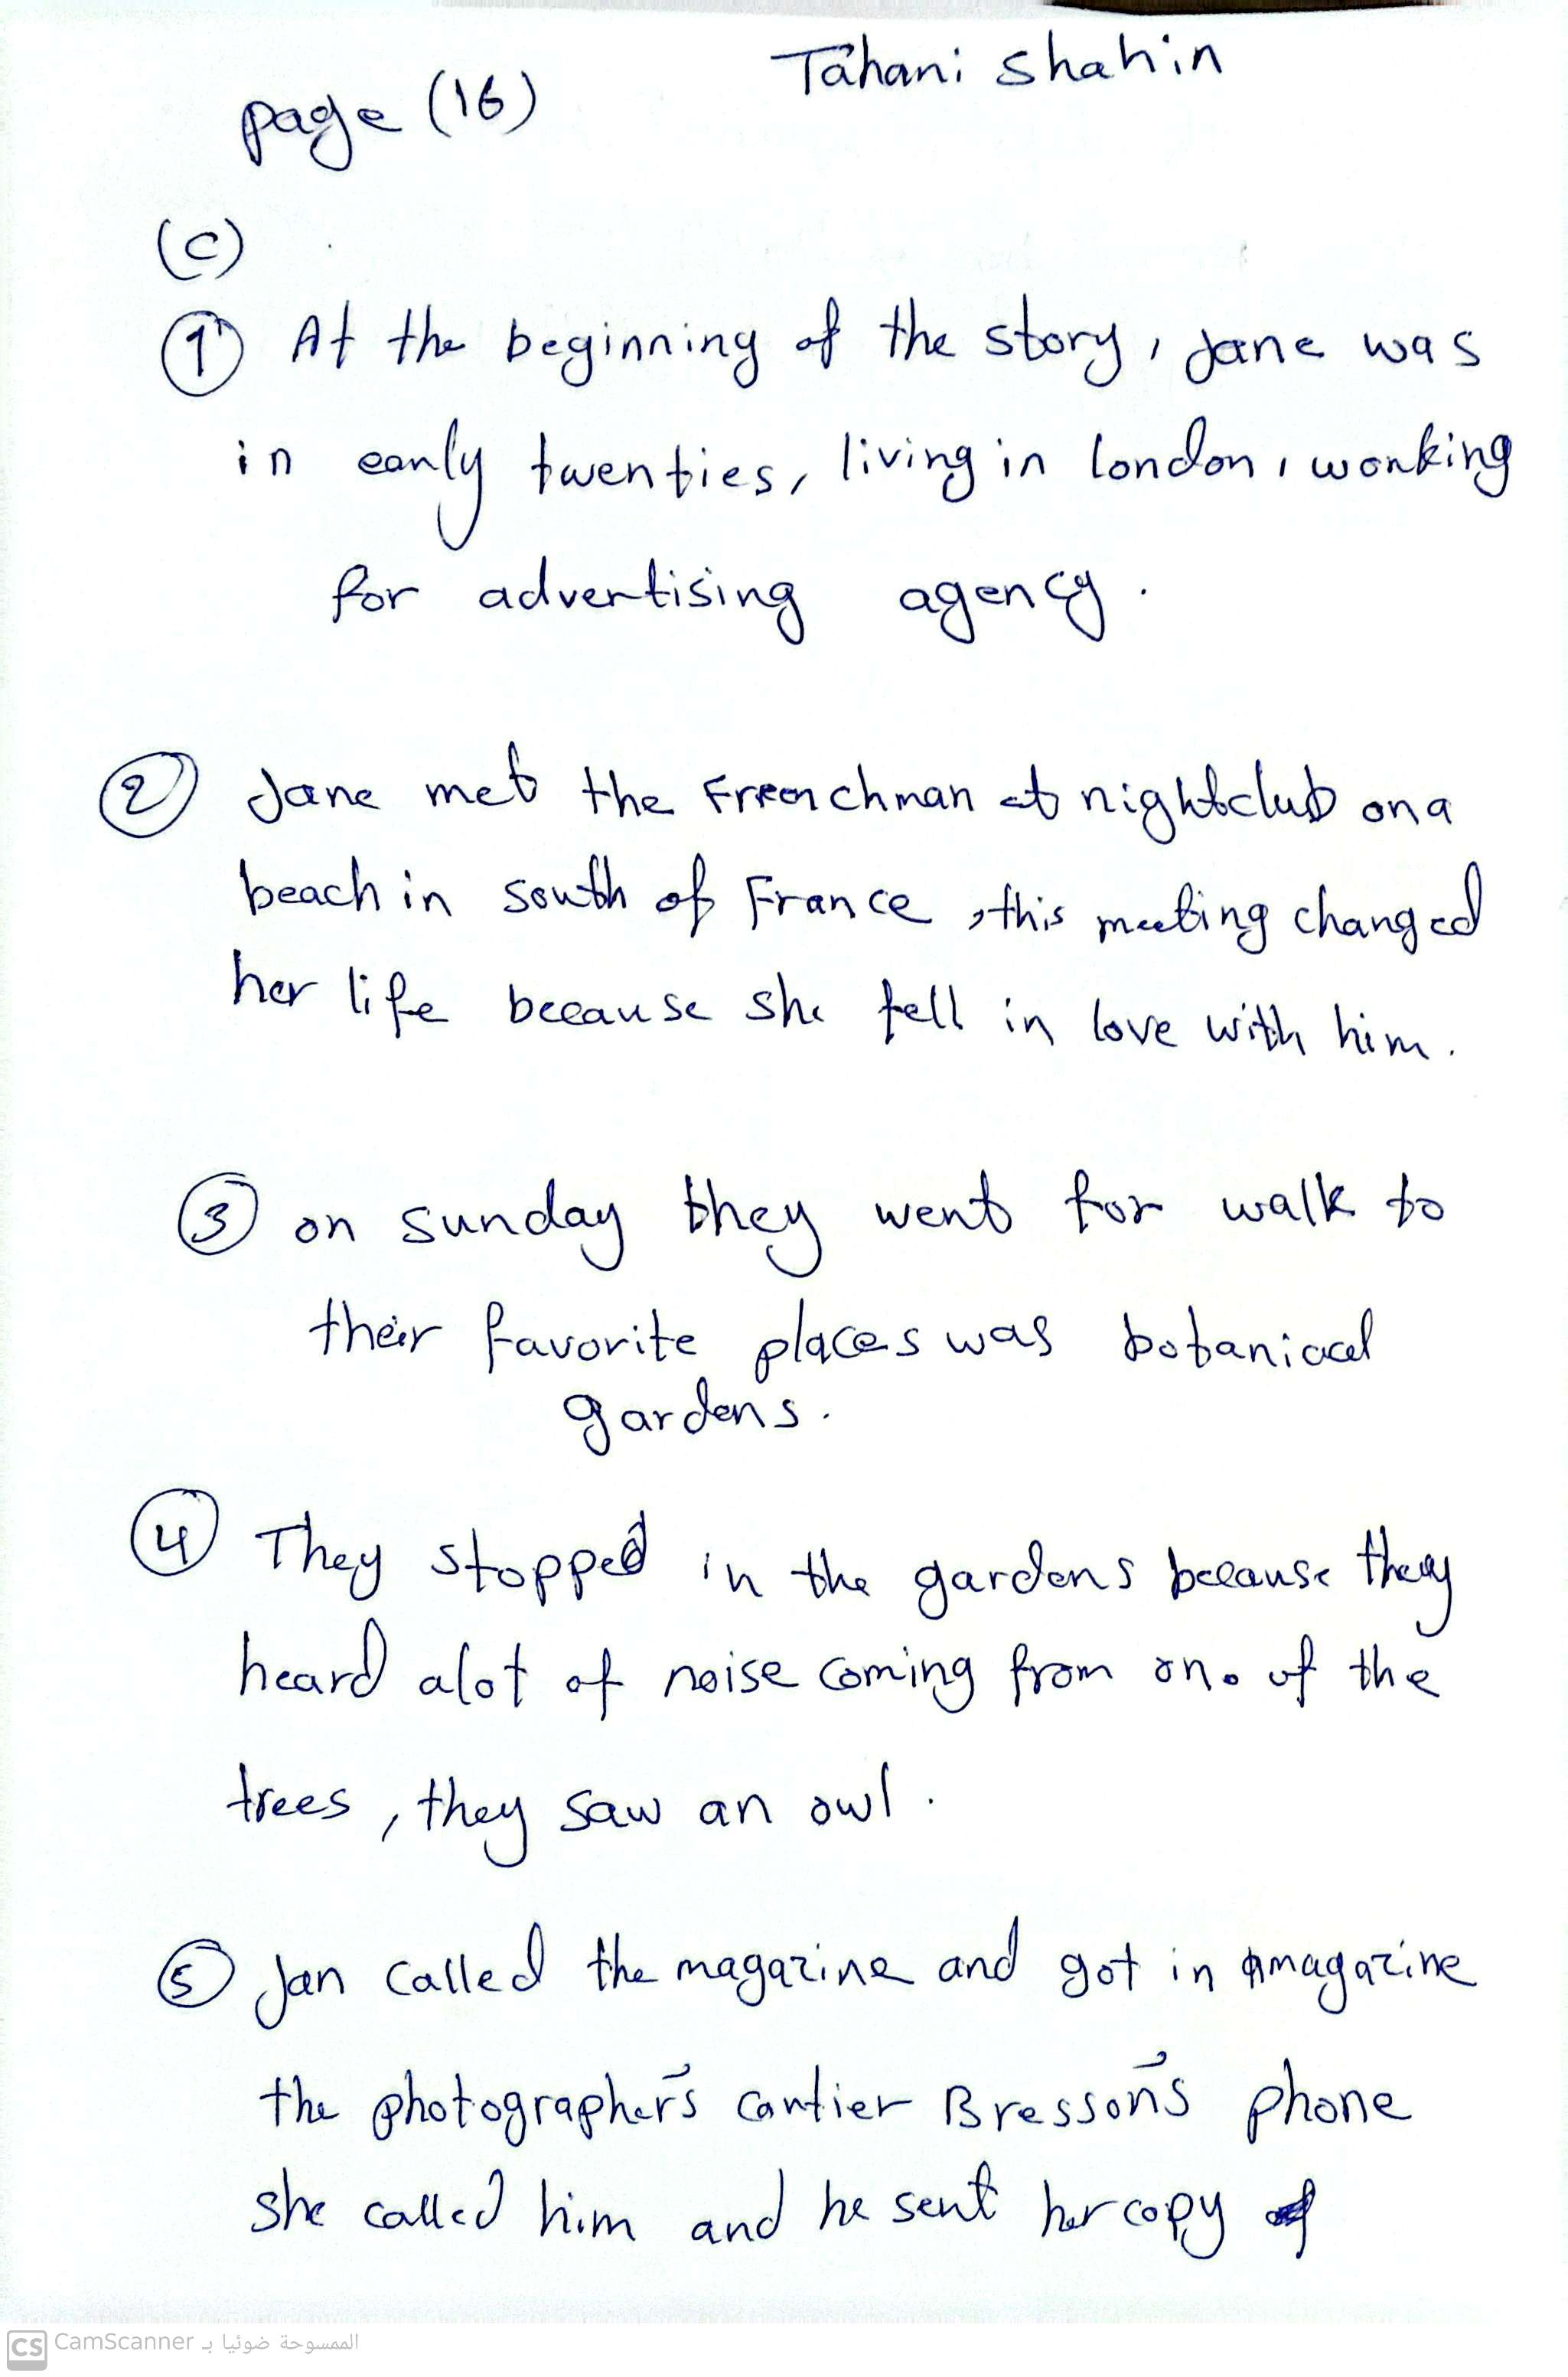 Tahani shahin
page (16)
(C)
1 At the beginning of the story, Jane was
in early twenties, living in london, working
for advertising agency.
2 Jane met the Frenchman at nightclub on a
beach in south of France, this meeting changed
her life because she fell in love with him.
3 on sunday they went for walk to
their favorite places was botanical
gardens.
4 They stopped in the gardens because they
heard alot of noise coming from one of the
trees, they saw an owl.
5 Jan called the magazine and got in magazine
the photographer's cartier Bresson's phone
she called him and he sent her copy of
CS CamScanner الممسوحة ضوئيا بـ